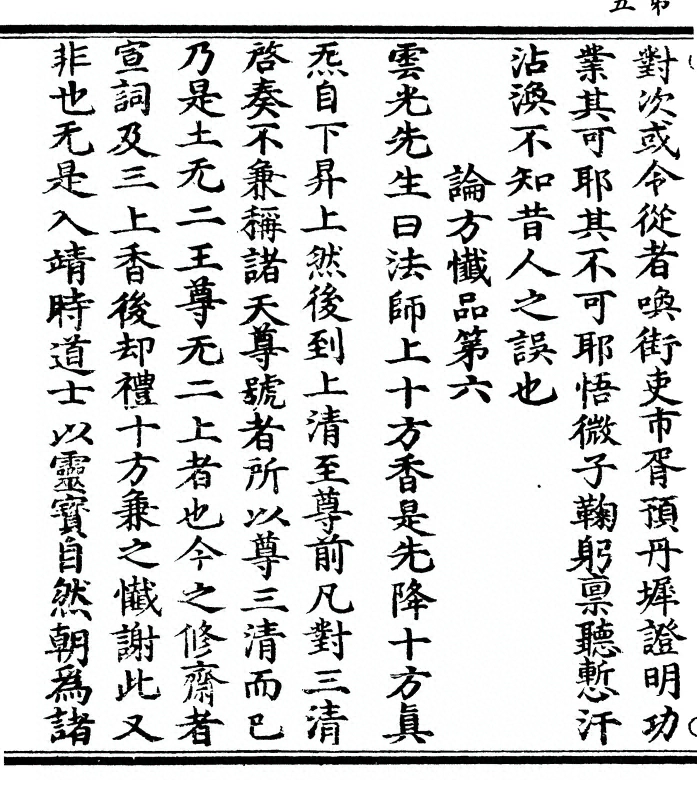 第五
對次或令從者喚街吏市胥預丹墀證明功
業其可耶其不可耶悟微子鞠躬禀聽慙汗
沾渙不知昔人之誤也
論方懺品第六
雲光先生曰法師上十方香是先降十方眞
炁自下昇上然後到上清至尊前凡對三清
啓奏不兼稱諸天尊號者所以尊三清而已
乃是土无二王尊无二上者也今之修齋者
宣詞及三上香後却禮十方兼之懺謝此又
非也无是入靖時道士以靈寳自然朝爲諸